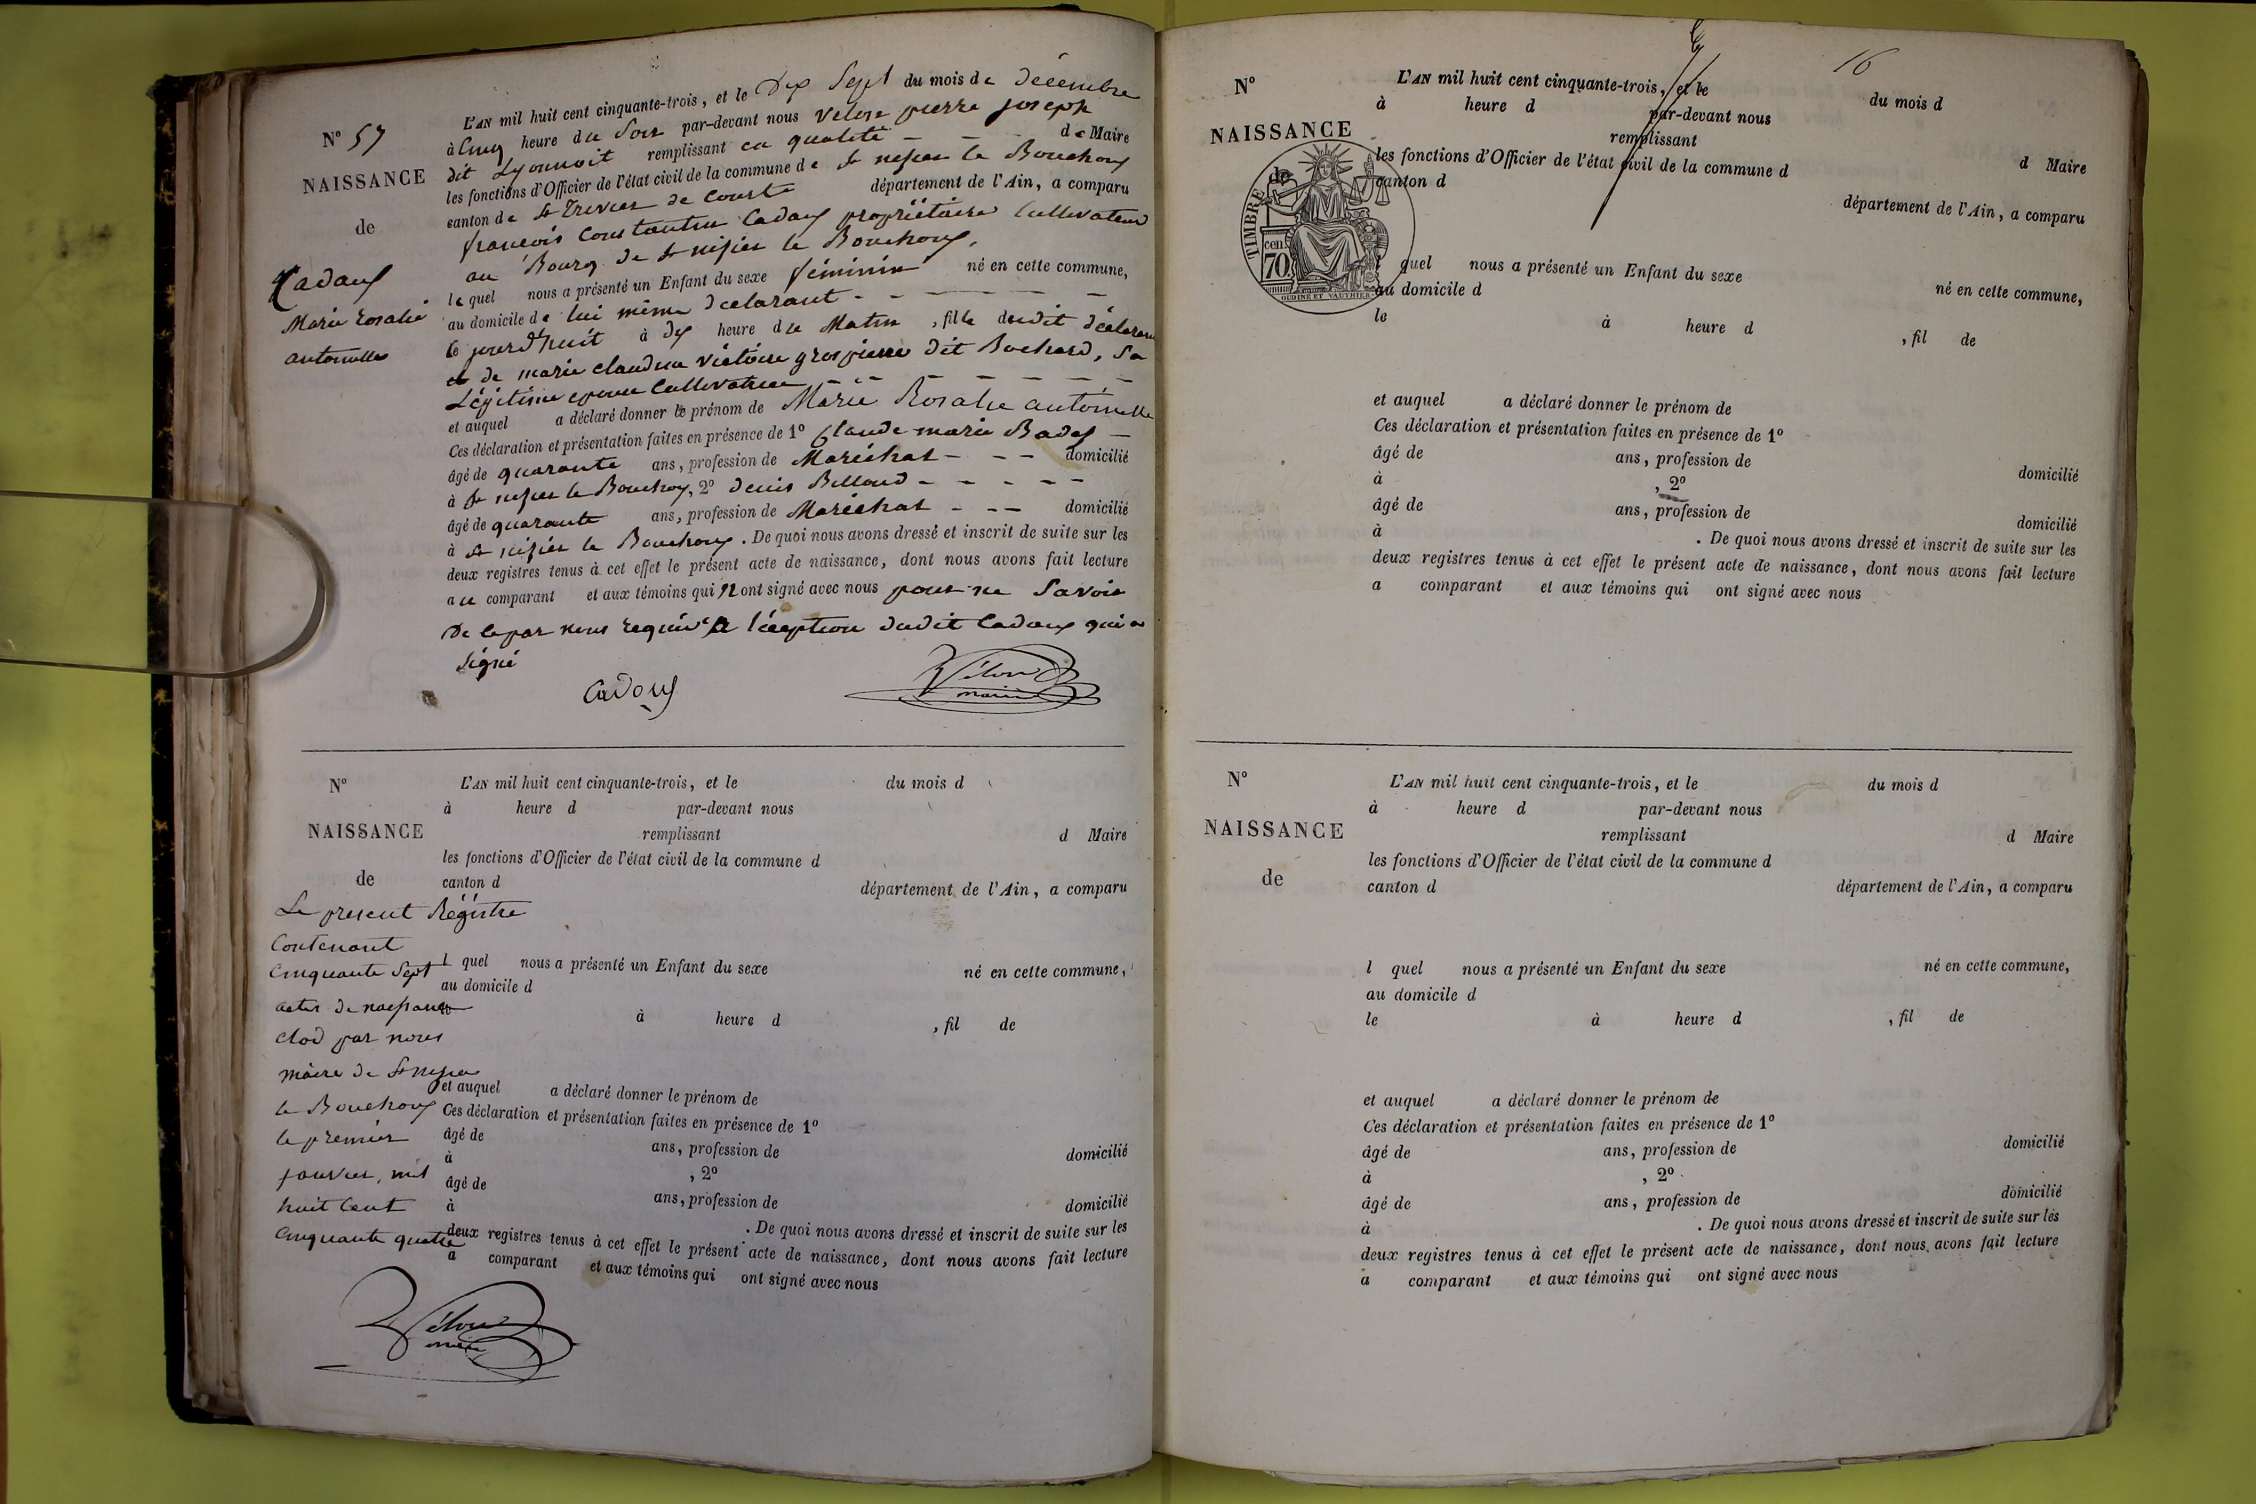 L'AN mil huit cent cinquante-trois, et le Dix Sept du mois de Décembre
N° 57
à Cinq heure du Soir par-devant nous Velon pierre joseph
dit Lyonnoit remplissant en qualité — — de Maire
NAISSANCE
les fonctions d'Officier de l'état civil de la commune de St nisier le Bouchoux
canton de St Trivier de Courte département de l'Ain, a comparu
de
françois Constantin Cadoux propriétaire Cultivateur
au Bourg de St nisier le Bouchoux,
Cadoux
Marie rosalie
antoinette
le quel nous a présenté un Enfant du sexe féminin né en cette commune,
au domicile de lui même déclarant - - — — —
le jourd'huit à dix heure du Matin , fille dudit déclarant
et de marie claudine victoire grospierre dit Bochard, Sa
Légitime epouse Cultivatrice — — — — — —
et auquel a déclaré donner le prénom de Marie Rosalie antoinette
Ces déclaration et présentation faites en présence de 1° Claude marie —
âgé de quarante ans, profession de Maréchal - - — domicilié
à St nisier le Bouchoux, 2° denis Billoud - - - - -
âgé de quarante ans, profession de Maréchal - - — domicilié
à St nisier le Bouchoux. De quoi nous avons dressé et inscrit de suite sur les
deux registres tenus à cet effet le présent acte de naissance, dont nous avons fait lecture
au comparant et aux témoins qui n'ont signé avec nous pour ne Savoir
De ce par nous requis a l'éception dudit Cadoux qui a
Signé
Cadoux
Velon
maire
N°
L'AN mil huit cent cinquante-trois, et le du mois d
à heure d par-devant nous
NAISSANCE
remplissant d Maire
les fonctions d'Officier de l'état civil de la commune d
de
canton d département de l'Ain, a comparu
Le present Régistre
Contenant
Cinquante Sept
actes de naissance
clod par nous
maire de St nisier
le Bouchoux
le premier
janvier, mil
huit Cent
Cinquante quatre
l quel nous a présenté un Enfant du sexe né en cette commune,
au domicile d
à heure d , fil de
et auquel a déclaré donner le prénom de
Ces déclaration et présentation faites en présence de 1°
âgé de ans, profession de domicilié
à , 2°
âgé de ans, profession de domicilié
à . De quoi nous avons dressé et inscrit de suite sur les
deux registres tenus à cet effet le présent acte de naissance, dont nous avons fait lecture
a comparant et aux témoins qui ont signé avec nous
Velon
maire
16
N°
L'AN mil huit cent cinquante-trois, et le du mois d
à heure d par-devant nous
NAISSANCE
remplissant d Maire
les fonctions d'Officier de l'état civil de la commune d
de
canton d département de l'Ain, a comparu
TIMBRE
cen.
70
OUDINÉ ET VAUTHIER
l quel nous a présenté un Enfant du sexe né en cette commune,
au domicile d
le à heure d , fil de
et auquel a déclaré donner le prénom de
Ces déclaration et présentation faites en présence de 1°
âgé de ans, profession de domicilié
à , 2°
âgé de ans, profession de domicilié
à . De quoi nous avons dressé et inscrit de suite sur les
deux registres tenus à cet effet le présent acte de naissance, dont nous avons fait lecture
a comparant et aux témoins qui ont signé avec nous
N°
L'AN mil huit cent cinquante-trois, et le du mois d
à heure d par-devant nous
NAISSANCE
remplissant d Maire
les fonctions d'Officier de l'état civil de la commune d
de
canton d département de l'Ain, a comparu
l quel nous a présenté un Enfant du sexe né en cette commune,
au domicile d
le à heure d , fil de
et auquel a déclaré donner le prénom de
Ces déclaration et présentation faites en présence de 1°
âgé de ans, profession de domicilié
à , 2°
âgé de ans, profession de domicilié
à . De quoi nous avons dressé et inscrit de suite sur les
deux registres tenus à cet effet le présent acte de naissance, dont nous avons fait lecture
a comparant et aux témoins qui ont signé avec nous